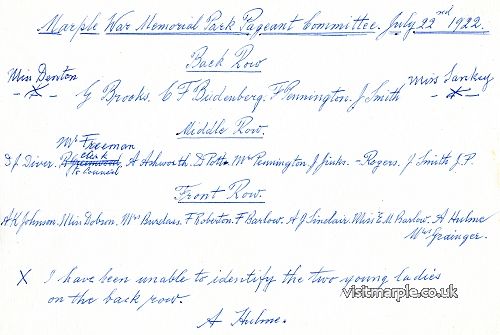 Marple War Memorial Park Pageant Committee. July 22nd 1922.
Back Row
Miss Denton
Miss Sankey
- X - G Brooks. C F Budenberg. F Pennington. J Smith - X -
Middle Row.
Mr Freeman
clerk
to Council
J Diver. A Ashworth. D Potts. Mr Pennington. J Jinks. - Rogers. J Smith J.P.
Front Row.
A K Johnson. Miss Dobson. Mrs Burdass. F Roberton. F Barlow. A J Sinclair. Miss E M Barlow. A Hulme
Mrs Grainger.
X I have been unable to identify the two young ladies
on the back row.
A Hulme.
visitmarple.co.uk